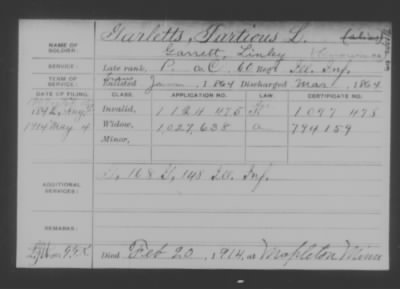 Garletts, Turticus L. (alias)
NAME OF SOLDIER: Garrett, Linley
SERVICE: Late rank, P. Co. C, 60 Reg't Ill. Inf.
TERM OF SERVICE: Enlisted Jan 1864 Discharged Mar, 1864
DATE OF FILING. CLASS. APPLICATION NO. LAW CERTIFICATE NO.
1892, Aug Invalid, 1124475 1097475
1914 May 4 Widow, 1,027,638 a 794159
Minor,
ADDITIONAL SERVICES: 148 Ill. Inf.
REMARKS:
Died Feb 20, 1914, at Mapleton Minn